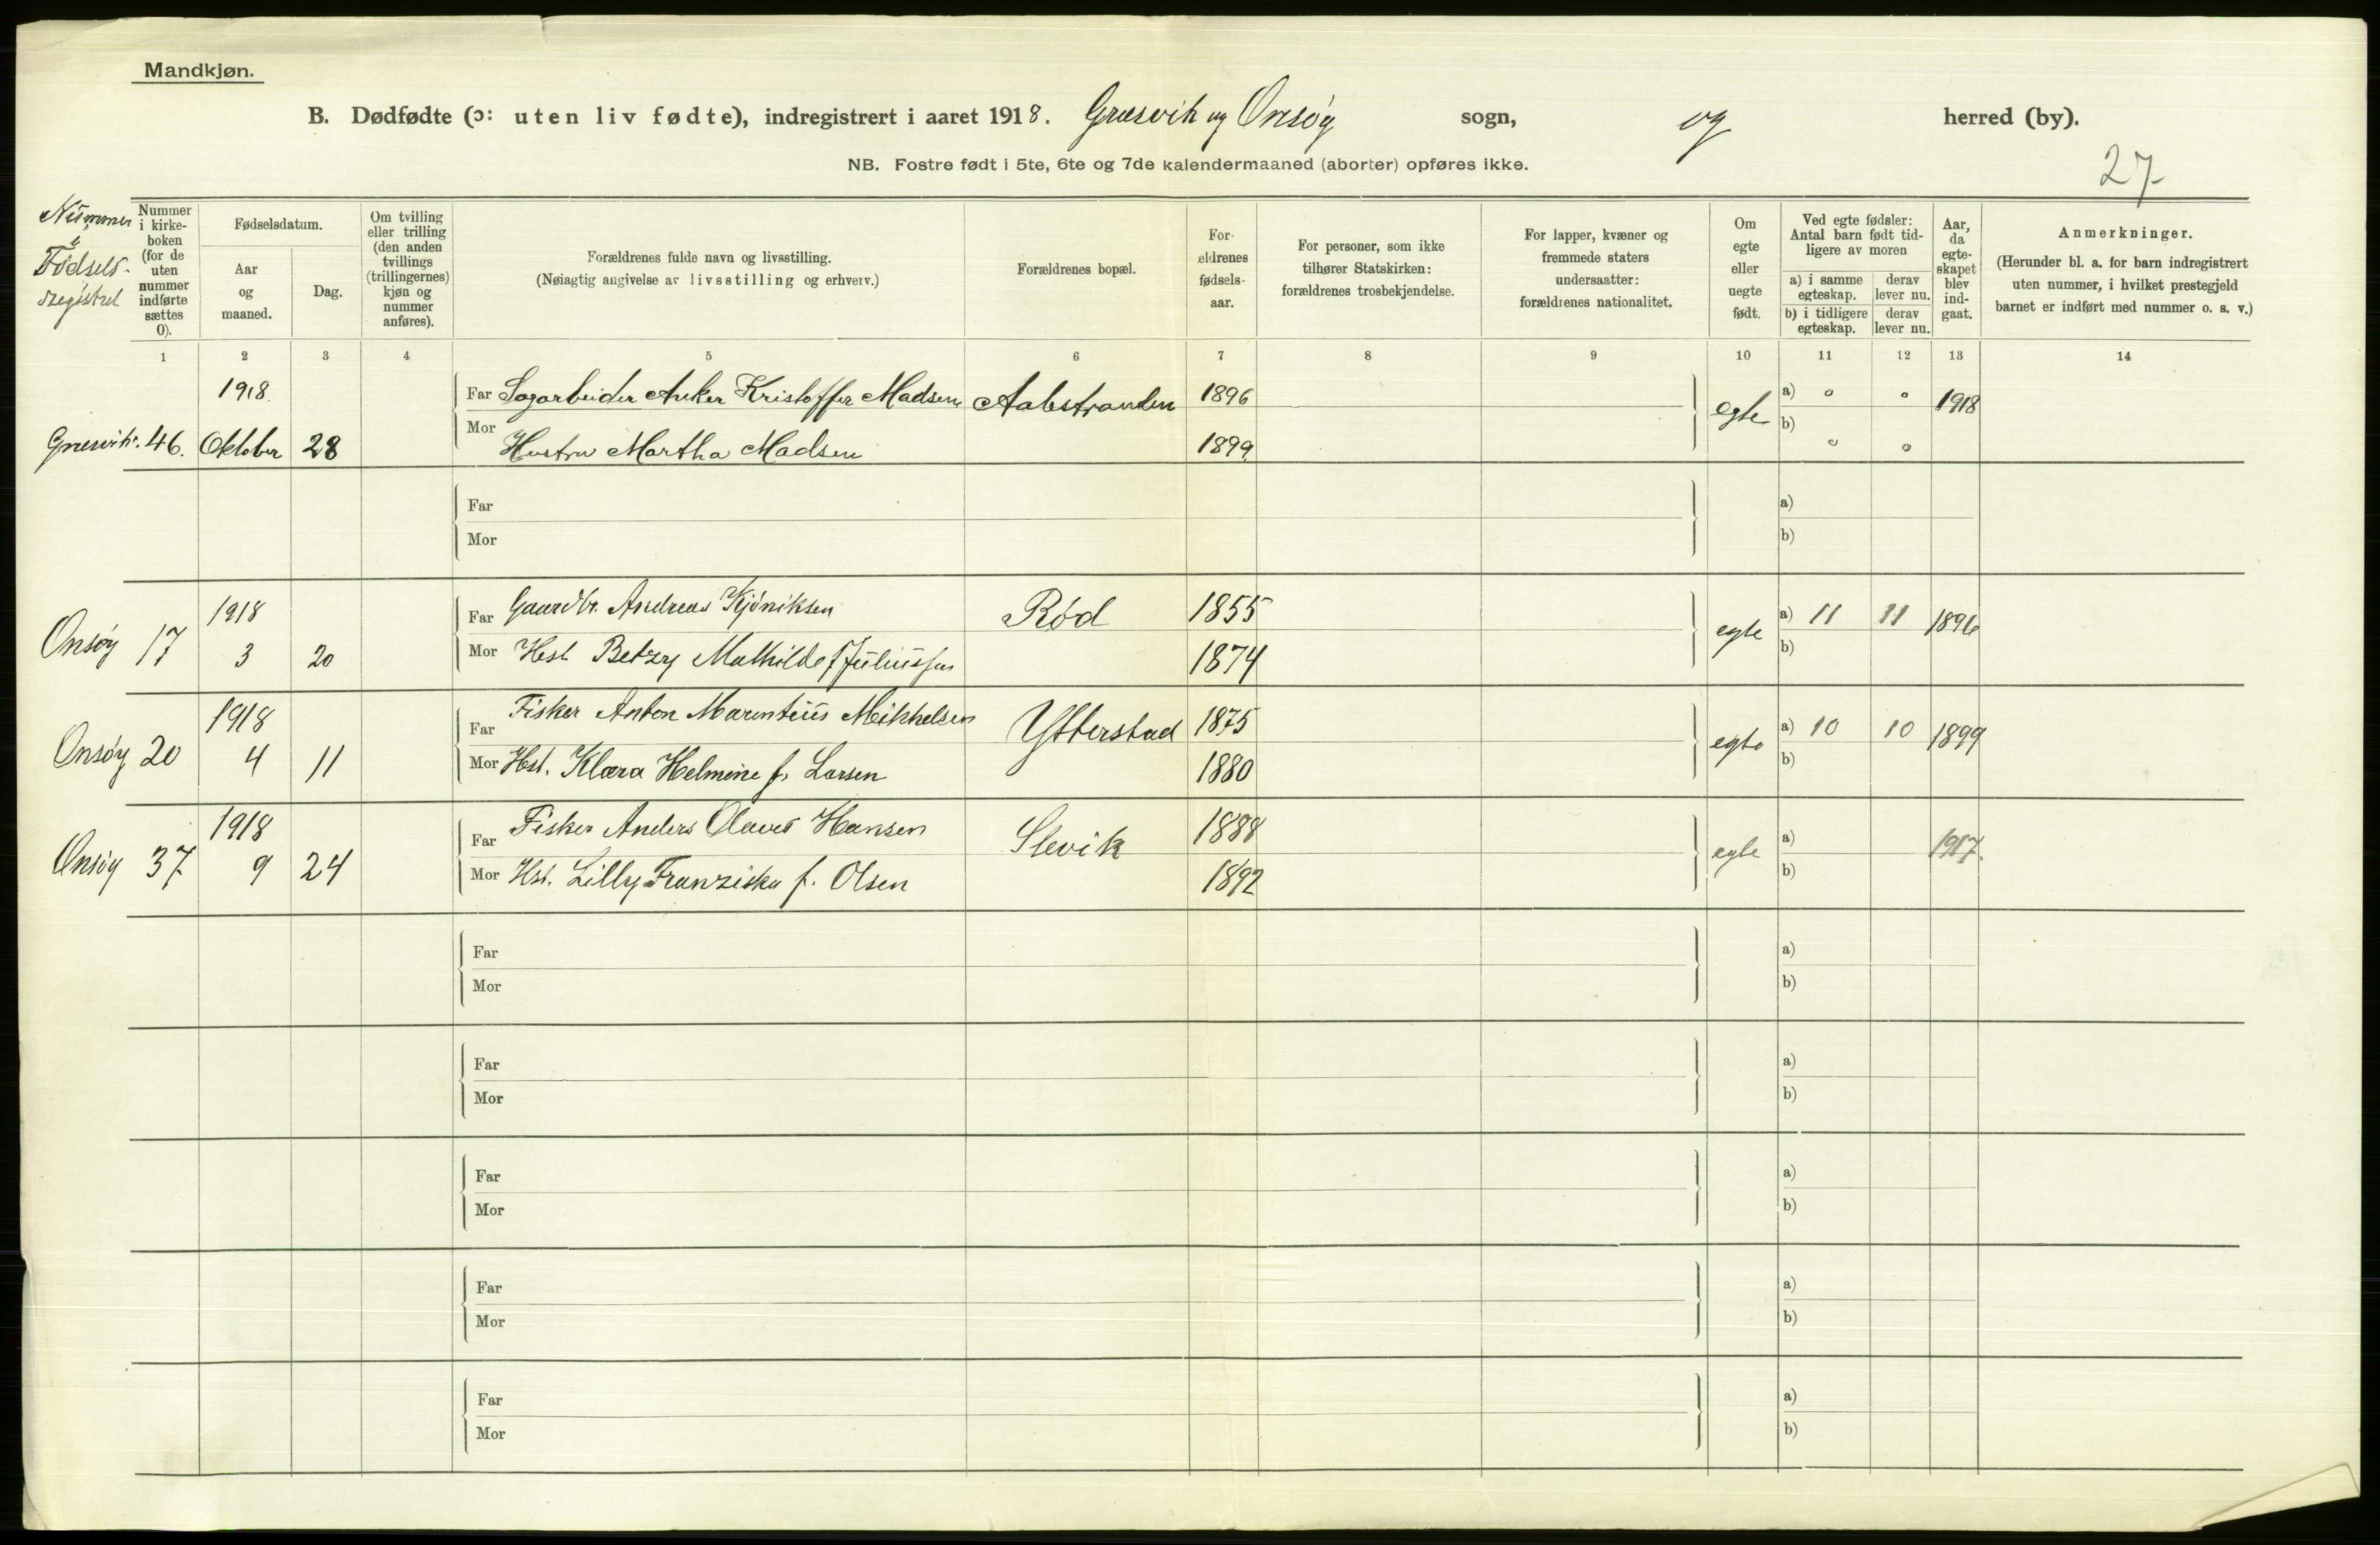 Mandkjøn.
B. Dødfødte (ɔ: uten liv fødte), indregistrert i aaret 1918. Græsvik og Onsøy sogn, og herred (by).
NB. Fostre født i 5te, 6te og 7de kalendermaaned (aborter) opføres ikke.
27
Nummer
i
Fødsels-
registret
Nummer i kirke-boken (for de uten nummer indførte sættes 0).
Fødselsdatum.
Aar og maaned.
Dag.
Om tvilling eller trilling (den anden tvillings (trillingernes) kjøn og nummer anføres).
Forældrenes fulde navn og livsstilling.
(Nøiagtig angivelse av livsstilling og erhverv.)
Forældrenes bopæl.
For-ældrenes fødsels-aar.
For personer, som ikke tilhører Statskirken: forældrenes trosbekjendelse.
For lapper, kvæner og fremmede staters undersaatter: forældrenes nationalitet.
Om egte eller uegte født.
Ved egte fødsler: Antal barn født tid-ligere av moren
a) i samme egteskap. derav lever nu.
b) i tidligere egteskap. derav lever nu.
Aar, da egte-skapet blev ind-gaat.
Anmerkninger.
(Herunder bl. a. for barn indregistrert uten nummer, i hvilket prestegjeld barnet er indført med nummer o. s. v.)
1 2 3 4 5 6 7 8 9 10 11 12 13 14
1918. Far Sagarbeider Anker Kristoffer Madsen Aalestranden 1896 egte a) 0 0 1918
Græsvik. 46. Oktober 28 Mor Hustru Martha Madsen 1899 b) 0 0
Far a)
Mor b)
1918 Far Gaardbr. Andreas Kjøniksen Rød 1855 egte a) 11 11 1896
Onsøy 17 3 20 Mor Hst Betzy Mathilde f Juliussen 1874 b)
1918 Far Fisker Anton Marentius Mikkelsen Ytterstad 1875 egte a) 10 10 1899
Onsøy 20 4 11 Mor Hst. Klara Helmine f. Larsen 1880 b)
1918 Far Fisker Anders Olaves Hansen Slevik 1888 egte a) 1917.
Onsøy 37 9 24 Mor Hst. Lilly Franziska f. Olsen 1892 b)
Far a)
Mor b)
Far a)
Mor b)
Far a)
Mor b)
Far a)
Mor b)
Far a)
Mor b)